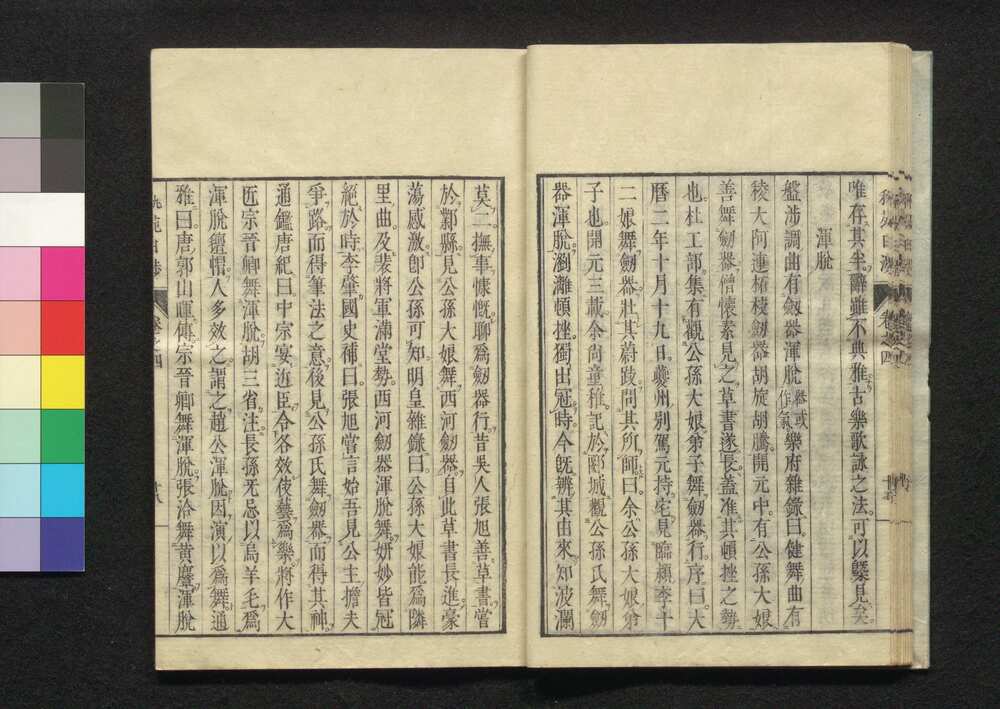 唯存其半辭雖不典雅古樂歌詠之法可以槩見矣
渾脫
盤涉調曲有劒器渾脫器或作氣樂府雜錄曰健舞曲有
稜大阿連柘枝劒器胡旋胡騰開元中有公孫大娘
善舞劒器僧懷素見之草書遂長蓋准其頓挫之勢
也杜工部集有觀公孫大娘弟子舞劒器行序曰大
曆二年十月十九日夔州別駕元持宅見臨潁李十
二娘舞劒器壯其蔚跂問其所師曰余公孫大娘弟
子也開元三載余尚童稚記於郾城觀公孫氏舞劒
器渾脫瀏漓頓挫獨出冠時今旣辨其由來知波瀾
莫二撫事慷慨聊爲劒器行昔吳人張旭善草書嘗
於鄴縣見公孫大娘舞西河劒器自此草書長進豪
蕩感激卽公孫可知明皇雜錄曰公孫大娘能爲隣
里曲及裴將軍滿堂勢西河劒器渾脫舞妍妙皆冠
絕於時李肇國史補曰張旭嘗言始吾見公主擔夫
爭路而得筆法之意後見公孫氏舞劒器而得其神
通鑑唐紀曰中宗宴近臣令各效伎藝爲樂將作大
匠宗晉卿舞渾脫胡三省注長孫无忌以烏羊毛爲
渾脫氊帽人多效之謂之趙公渾脫因演以爲舞通
雅曰唐郭山暉傳宗晉卿舞渾脫張洽舞黃麞渾脫
卷之四